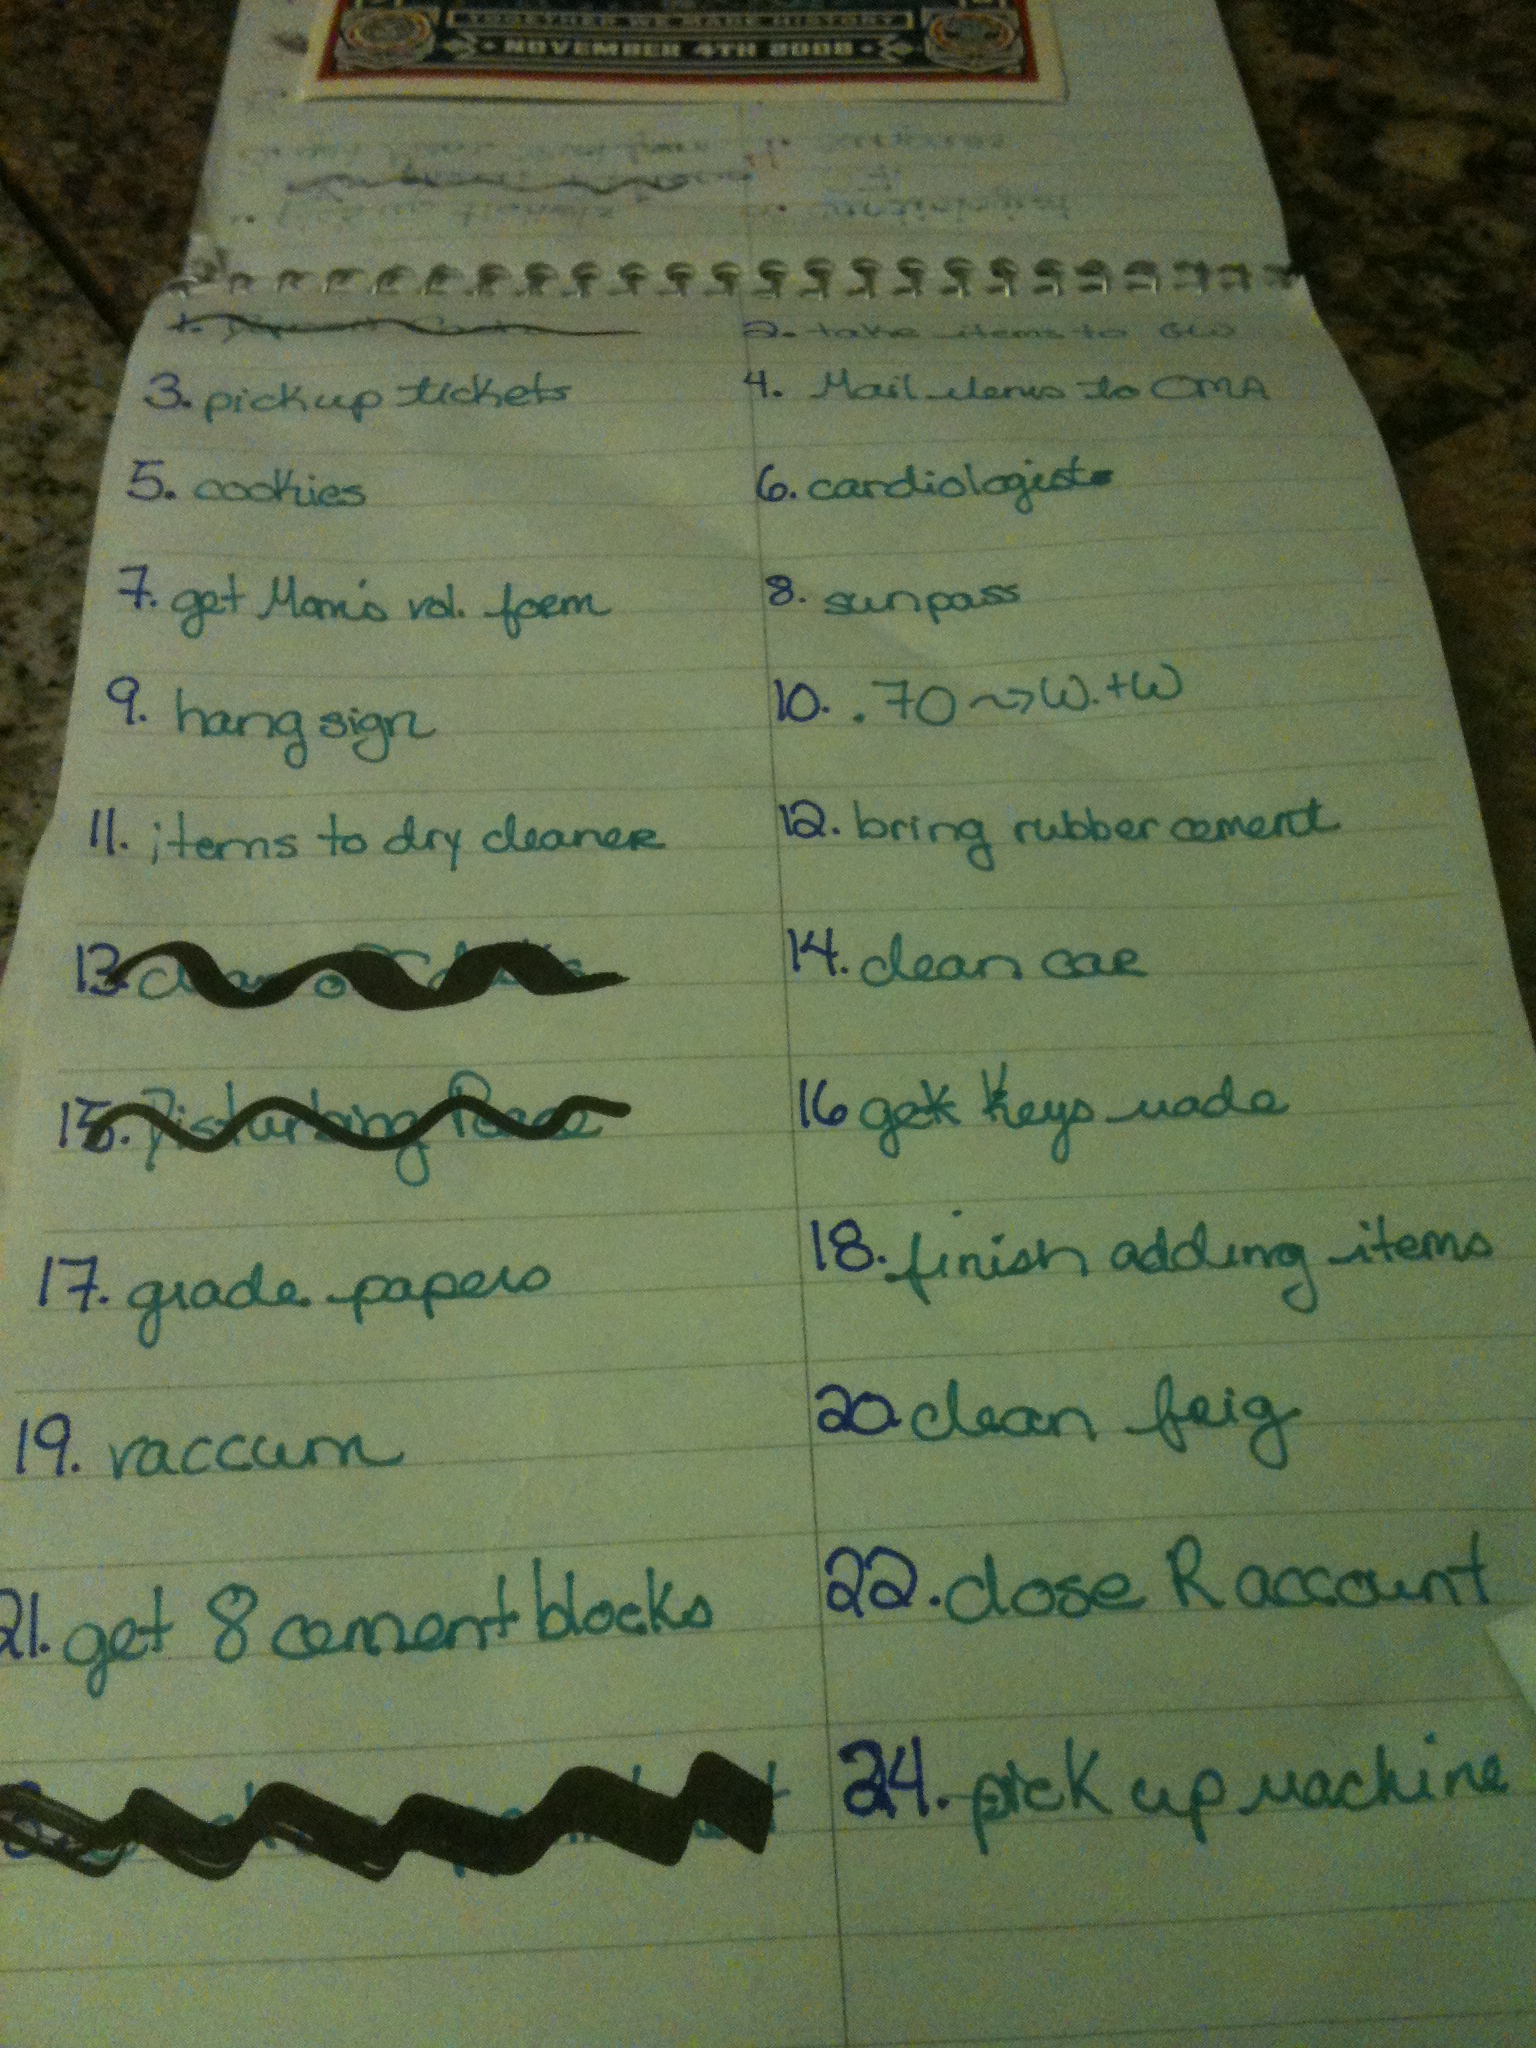 TOGETHER WE MADE HISTORY
NOVEMBER 4TH 2008
1.
2. take items to GW
3. pick up tickets
4. Mail items to CMA
5. cookies
6. cardiologist
7. get Mom's vol. form
8. sunpass
9. hang sign
10. .70 → W.+W
11. items to dry cleaner
12. bring rubber cement
13. clean off desks
14. clean car
15. Disturbing Peace
16 get keys made
17. grade papers
18. finish adding items
19. vaccum
20. clean frig
21. get 8 cement blocks
22. close R account
24. pick up machine